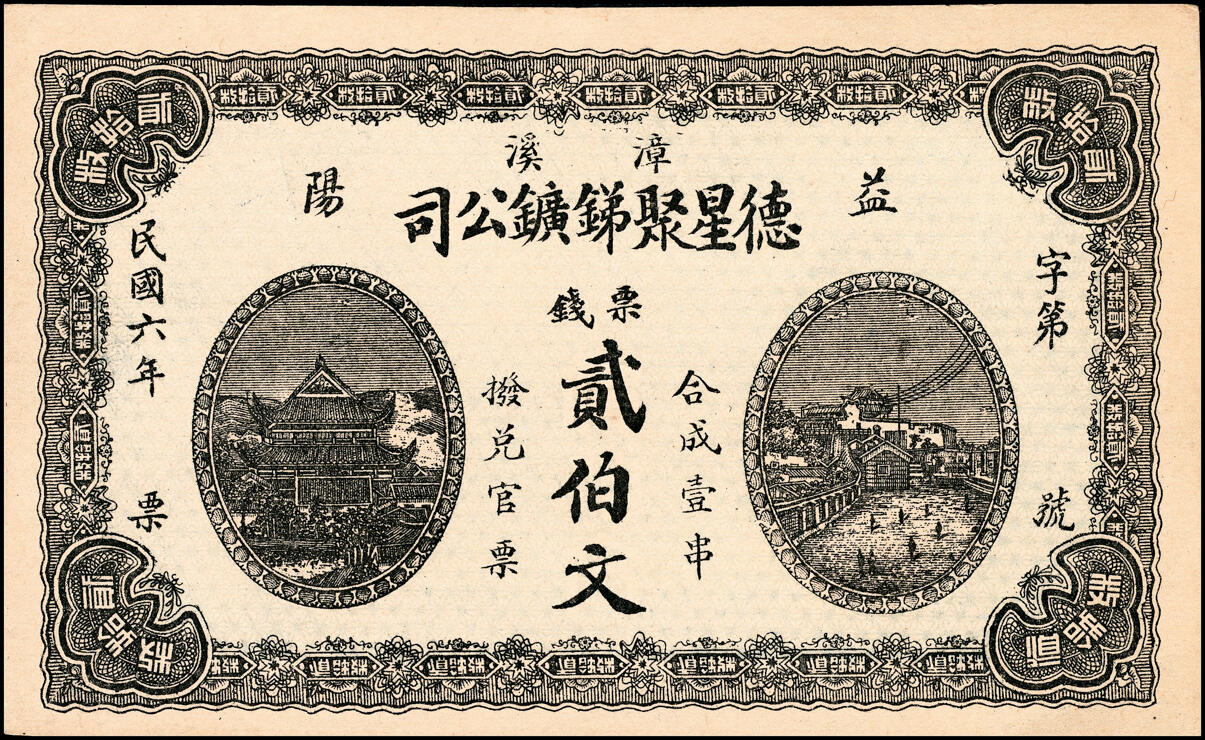 益陽
漳溪
德星聚銻鑛公司
票錢
字第號
合成壹串
貳伯文
撥兌官票
民國六年票
貳拾枚
貳拾枚
貳拾枚
貳拾枚